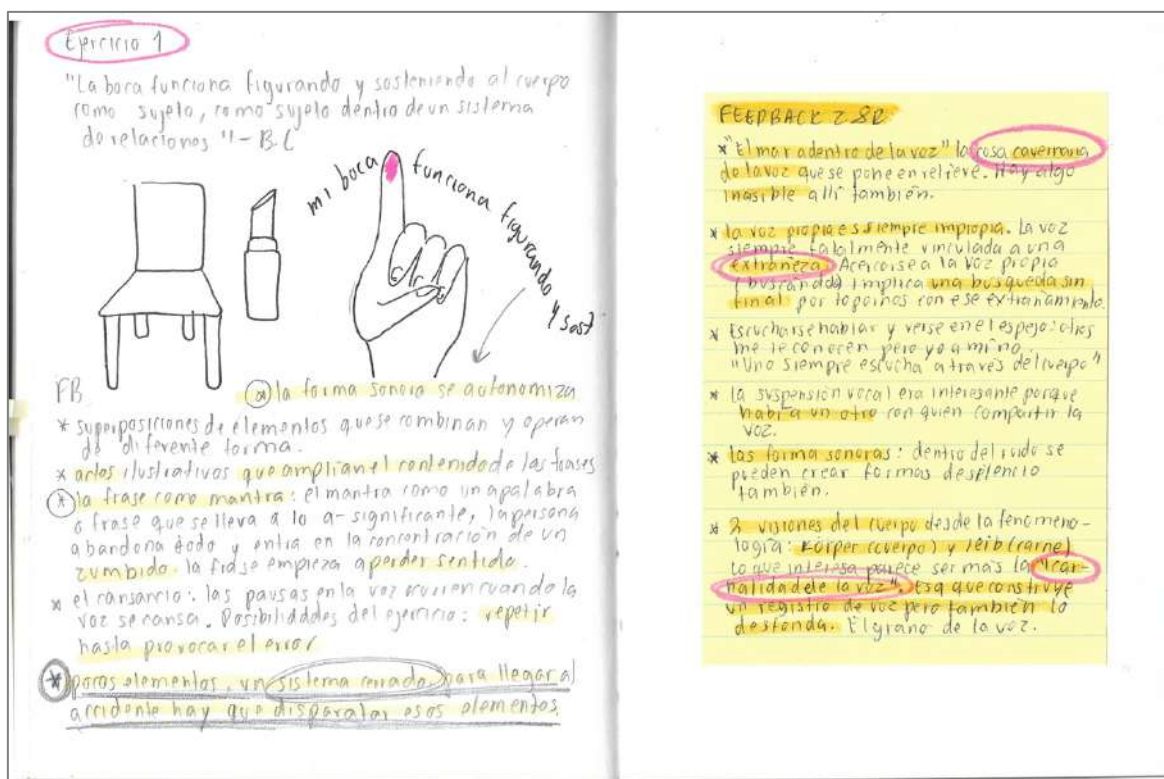 Ejercicio 1
"La boca funciona figurando y sosteniendo al cuerpo
como sujeto, como sujeto dentro de un sistema
de relaciones" - B.C
mi boca funciona figurando y sost
FB
* la forma sonora se autonomiza
* superposiciones de elementos que se combinan y operan
de diferente forma.
* actos ilustrativos que amplian el contenido de las frases
* la frase como mantra: el mantra como una palabra
o frase que se lleva a lo a-significante, la persona
abandona todo y entra en la concentración de un
zumbido. la frase empieza a perder sentido.
* cansancio: las pausas en la voz ocurren cuando la
voz se cansa. Posibilidades del ejercicio: repetir
hasta provocar el error
* pocos elementos, un sistema cerrado, para llegar al
accidente hay que disparatar esos elementos.
FEEDBACK Z &R
* "El mar adentro de la voz" la cosa cavernaria
de la voz que se pone en relieve. Hay algo
inasible allí también.
* la voz propia es siempre impropia. La voz
siempre fatalmente vinculada a una
extrañeza. Acercarse a la voz propia
(buscándola) implica una busqueda sin
final por toparnos con ese extrañamiento.
* Escucharse hablar y verse en el espejo: otros
me reconocen pero yo a mi no.
"Uno siempre escucha a través del cuerpo"
* la suspensión vocal era interesante porque
había un otro con quien compartir la
voz.
* las forma sonoras: dentro del ruido se
pueden crear formas de silencio
también.
* 2 visiones del cuerpo desde la fenomeno-
logía: Körper (cuerpo) y leib (carne)
lo que interesa parece ser más la "car-
nalidad de la voz". Esa que construye
un registro de voz pero también lo
desfonda. El grano de la voz.